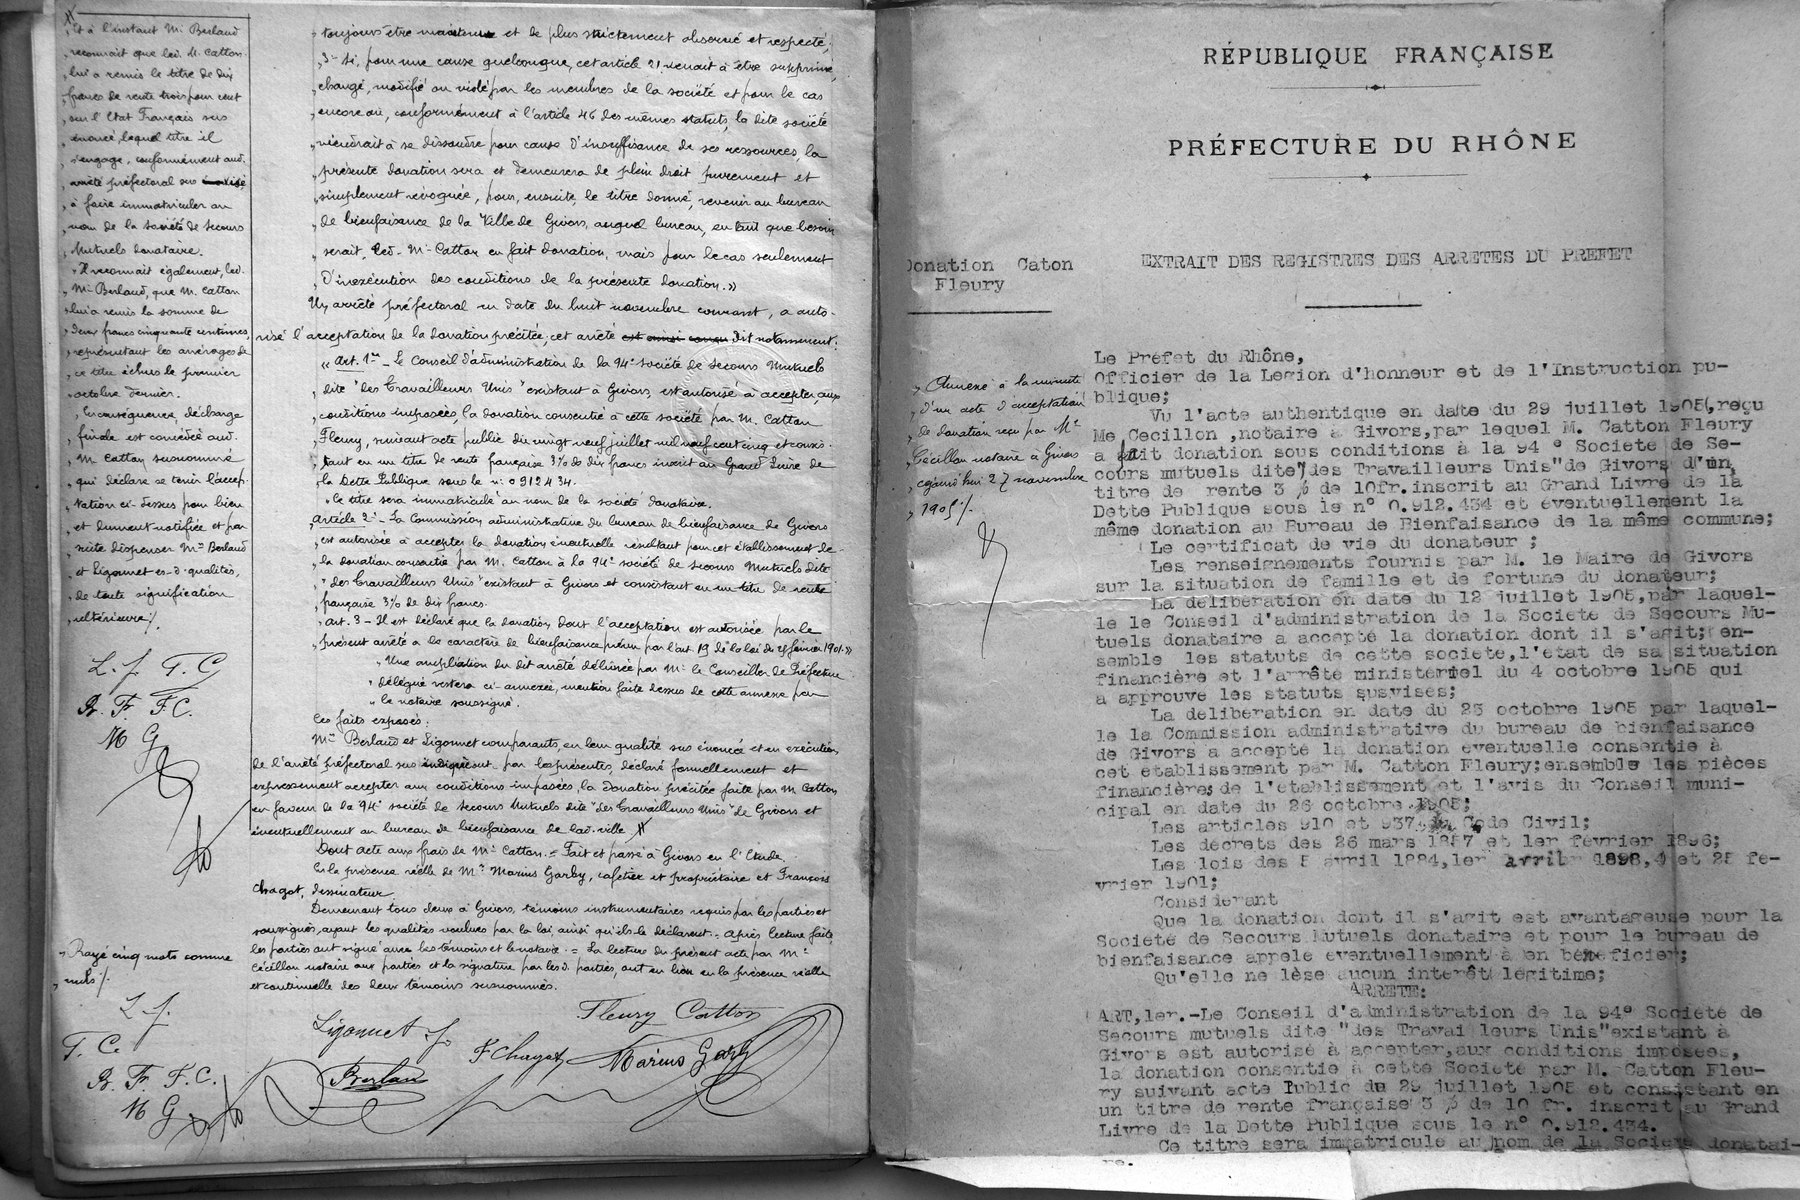 Et à l'instant Mr Berlaud
reconnait que led. M. Catton
lui a remis le titre de dix
francs de rente trois pour cent
sur l'Etat Français sus
énoncé, lequel titre il
s'engage, conformément aud.
arrêté préfectoral sus
à faire immatriculer au
nom de la société de secours
Mutuels donataire.
Il reconnait également, led.
Mr Berlaud, que M. Catton
lui a remis la somme de
deux francs cinquante centimes,
représentant les arrérages de
ce titre échus le premier
octobre dernier.
En conséquence, décharge
finale est concédée aud.
M. Catton susnommé
qui déclare se tenir l'accep-
tation ci-dessus pour bien
et dument notifiée et par
suite dispenser Mrs Berlaud
et Ligonnet es-d. qualités,
de toute signification
ultérieure/.
L. J. F. C
B. F. F. C.
M G
Rayé cinq mots comme
nuls/.
L. J.
F. C.
B. F. F. C.
M G
toujours être maintenu et le plus strictement observé et respecté;
3° Si, pour une cause quelconque, cet article 21 venait à être supprimé,
changé, modifié ou violé par les membres de la société et pour le cas
encore où, conformément à l'article 46 des mêmes statuts, la dite société
viendrait à se dissoudre pour cause d'insuffisance de ses ressources, la
présente donation sera et demeurera de plein droit purement et
simplement révoquée, pour, ensuite, le titre donné, revenir au bureau
de bienfaisance de la Ville de Givors, auquel bureau, en tant que besoin
serait, led. Mr Catton en fait donation, mais pour le cas seulement
d'inexécution des conditions de la présente donation.»
Un arrêté préfectoral en date du huit novembre courant, a auto-
risé l'acceptation de la donation précitée; cet arrêté est ainsi conçu dit notamment:
« Art. 1er - Le Conseil d'administration de la 94e société de secours Mutuels
dite "des Travailleurs Unis" existant à Givors, est autorisé à accepter, aux
conditions imposées, la donation consentie à cette société par M. Catton
Fleury, suivant acte public du vingt neuf juillet mil neuf cent cinq et consis-
tant en un titre de rente française 3% de dix francs inscrit au Grand Livre de
la Dette Publique sous le n° 0912434.
Ce titre sera immatriculé au nom de la société donataire.
Article 2 - La Commission administrative du bureau de bienfaisance de Givors
est autorisée à accepter la donation éventuelle résultant pour cet établissement de
la donation consentie par M. Catton à la 94e société de secours Mutuels dite
"des Travailleurs Unis" existant à Givors et consistant en un titre de rente
française 3% de dix francs.
Art. 3 - Il est déclaré que la donation dont l'acceptation est autorisée par le
présent arrêté a le caractère de bienfaisance prévu par l'art. 19 de la loi du 25 février 1901.»
Une ampliation du dit arrêté délivrée par Mr le Conseiller de Préfecture
délégué restera ci-annexée, mention faite dessus de cette annexe par
le notaire soussigné.
Ces faits exposés:
Mrs Berlaud et Ligonnet comparants, en leur qualité sus énoncée et en exécution
de l'arrêté préfectoral sus indiqué ont par les présentes, déclaré formellement et
expressément accepter aux conditions imposées, la donation précitée faite par M. Catton
en faveur de la 94e société de secours Mutuels dite "des Travailleurs Unis" de Givors et
éventuellement au bureau de bienfaisance de lad. ville.
Dont acte aux frais de Mr Catton. = Fait et passé à Givors en l'Etude.
En la présence réelle de Mrs Marius Garby, cafetier et propriétaire et François
Chagot, dessinateur
Demeurant tous deux à Givors, témoins instrumentaires requis par les parties et
soussignés, ayant les qualités voulues par la loi, ainsi qu'ils le déclarent. = Après lecture faite,
les parties ont signé avec les témoins et le notaire. = La lecture du présent acte par Mr
Cécillon notaire aux parties et la signature par les d. parties, ont eu lieu en la présence réelle
et continuelle des deux témoins susnommés.
Fleury Catton
Ligonnet J.
F Chagot
Marius Garby
Berlau
RÉPUBLIQUE FRANÇAISE
PRÉFECTURE DU RHÔNE
EXTRAIT DES REGISTRES DES ARRETES DU PREFET
Donation Caton
Fleury
Annexé à la minute
d'un acte d'acceptation
de donation reçu par Me
Cécillon notaire à Givors
cejourd'hui 27 novembre
1905/.
Le Préfet du Rhône,
Officier de la Legion d'honneur et de l'Instruction pu-
blique;
Vu l'acte authentique en date du 29 juillet 1905, reçu
Me Cecillon ,notaire à Givors,par lequel M. Catton Fleury
a fait donation sous conditions à la 94 e Société de Se-
cours mutuels dite "des Travailleurs Unis" de Givors d'un
titre de rente 3 % de 10fr. inscrit au Grand Livre de la
Dette Publique sous le n° 0.912.434 et éventuellement la
même donation au Bureau de Bienfaisance de la même commune;
Le certificat de vie du donateur ;
Les renseignements fournis par M. le Maire de Givors
sur la situation de famille et de fortune du donateur;
La délibération en date du 12 juillet 1905,par laquel-
le le Conseil d'administration de la Société de Secours Mu-
tuels donataire a accepté la donation dont il s'agit; en-
semble les statuts de cette societe,l'état de sa situation
financière et l'arrêté ministeriel du 4 octobre 1905 qui
a approuvé les statuts susvisés;
La délibération en date du 23 octobre 1905 par laquel-
le la Commission administrative du bureau de bienfaisance
de Givors a accepté la donation éventuelle consentie à
cet établissement par M. Catton Fleury;ensemble les pièces
financières de l'établissement et l'avis du Conseil muni-
cipal en date du 26 octobre 1905;
Les articles 910 et 937 du Code Civil;
Les décrets des 26 mars 1857 et 1er février 1896;
Les lois des 5 avril 1884,1er avril 1898, et 25 fe-
vrier 1901;
Considerant
Que la donation dont il s'agit est avantageuse pour la
Société de Secours Mutuels donataire et pour le bureau de
bienfaisance appelé éventuellement à en bénéficier;
Qu'elle ne lèse aucun intérêt légitime;
ARRETE:
ART,1er.-Le Conseil d'administration de la 94e Société de
Secours mutuels dite "des Travailleurs Unis"existant à
Givors est autorisé à accepter,aux conditions imposées,
la donation consentie à cette Société par M. Catton Fleu-
ry suivant acte Public du 29 juillet 1905 et consistant en
un titre de rente française 3 % de 10 fr. inscrit au Grand
Livre de la Dette Publique sous le n° 0.912.434.
Ce titre sera immatriculé au nom de la Société donatai-
re.